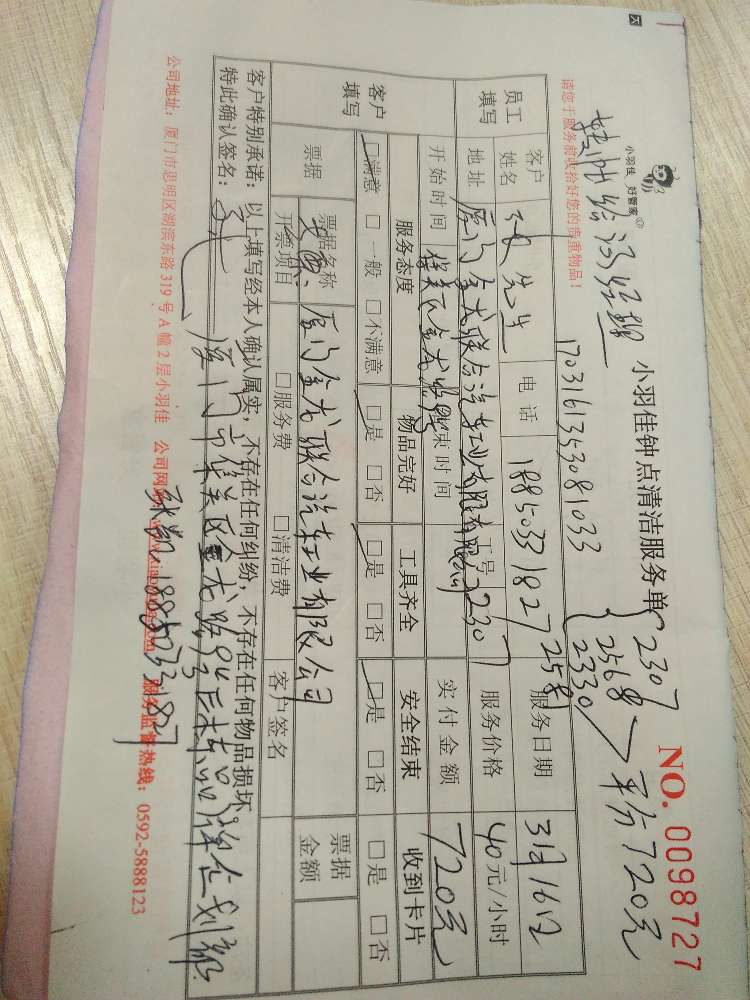 小羽佳 好管家
小羽佳钟点清洁服务单
NO. 0098727
请您于服务前收拾好您的贵重物品！
转帐给汤经理
1703161353081033
2307
2568
2330
平分720元
员工填写
客户姓名
张先生
电话
18850331827
服务日期
3月16日
地址
厦门金龙联合汽车工业有限公司
工号
2307
服务价格
40元/小时
开始时间
结束时间
实付金额
720元
客户填写
服务态度
物品完好
工具齐全
安全结束
收到卡片
☑满意 □一般 □不满意
☑是 □否
☑是 □否
☑是 □否
□是 □否
票据
票据名称
厦门金龙联合汽车工业有限公司
票据金额
开票项目
□服务费
□清洁费
客户签名
客户特别承诺：以上填写经本人确认属实，不存在任何纠纷，不存在任何物品损坏
特此确认签名：
厦门市集美区金龙路94号
品牌企划部
18850331827
公司地址：厦门市思明区湖滨东路319号A幢2层小羽佳
公司网
服务监督热线：0592-5888123